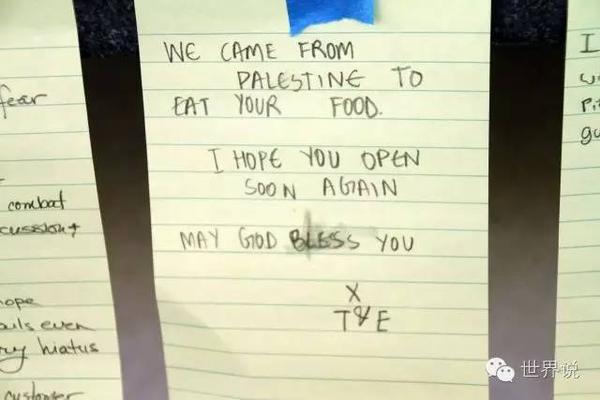 WE CAME FROM
PALESTINE TO
EAT YOUR FOOD.
I HOPE YOU OPEN
SOON AGAIN
MAY GOD BLESS YOU
X
T & E
fear
combat
hope
even
hiatus
customer
I
世界说